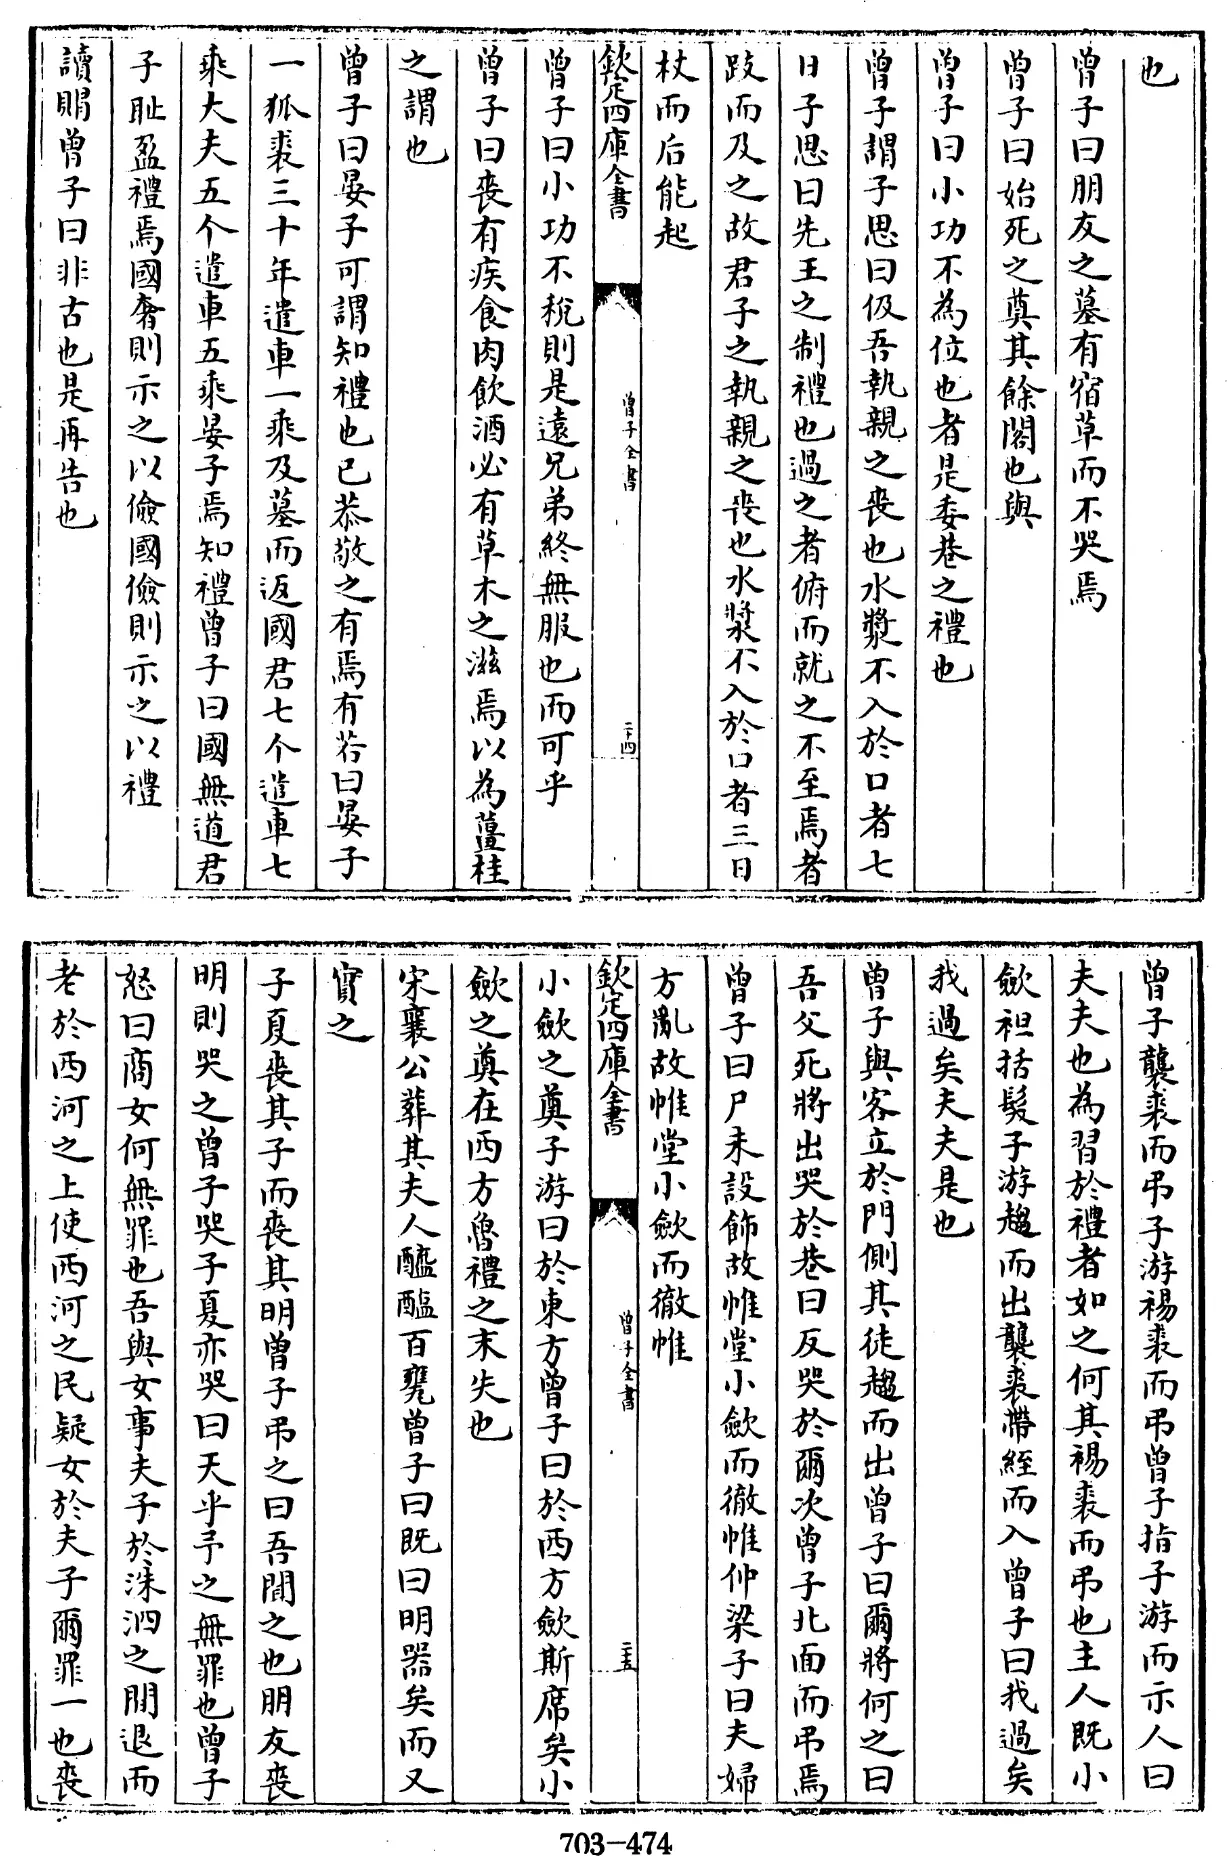 也
曾子曰朋友之墓有宿草而不哭焉
曾子曰始死之奠其餘閣也與
曾子曰小功不為位也者是委巷之禮也
曾子謂子思曰伋吾執親之喪也水漿不入於口者七
日子思曰先王之制禮也過之者俯而就之不至焉者
跂而及之故君子之執親之喪也水漿不入於口者三日
杖而后能起
欽定四庫全書
曾子全書
二十四
曾子曰小功不稅則是遠兄弟終無服也而可乎
曾子曰喪有疾食肉飲酒必有草木之滋焉以為薑桂
之謂也
曾子曰晏子可謂知禮也已恭敬之有焉有若曰晏子
一狐裘三十年遣車一乘及墓而返國君七个遣車七
乘大夫五个遣車五乘晏子焉知禮曾子曰國無道君
子耻盈禮焉國奢則示之以儉國儉則示之以禮
讀賵曾子曰非古也是再告也
曾子襲裘而弔子游裼裘而弔曾子指子游而示人曰
夫夫也為習於禮者如之何其裼裘而弔也主人既小
歛袒括髮子游趨而出襲裘帶絰而入曾子曰我過矣
我過矣夫夫是也
曾子與客立於門側其徒趨而出曾子曰爾將何之曰
吾父死將出哭於巷曰反哭於爾次曾子北面而弔焉
曾子曰尸未設飾故帷堂小歛而徹帷仲梁子曰夫婦
方亂故帷堂小歛而徹帷
欽定四庫全書
曾子全書
二十五
小歛之奠子游曰於東方曾子曰於西方歛斯席矣小
歛之奠在西方魯禮之末失也
宋襄公葬其夫人醯醢百甕曾子曰既曰明器矣而又
實之
子夏喪其子而喪其明曾子弔之曰吾聞之也朋友喪
明則哭之曾子哭子夏亦哭曰天乎予之無罪也曾子
怒曰商女何無罪也吾與女事夫子於洙泗之間退而
老於西河之上使西河之民疑女於夫子爾罪一也喪
703-474